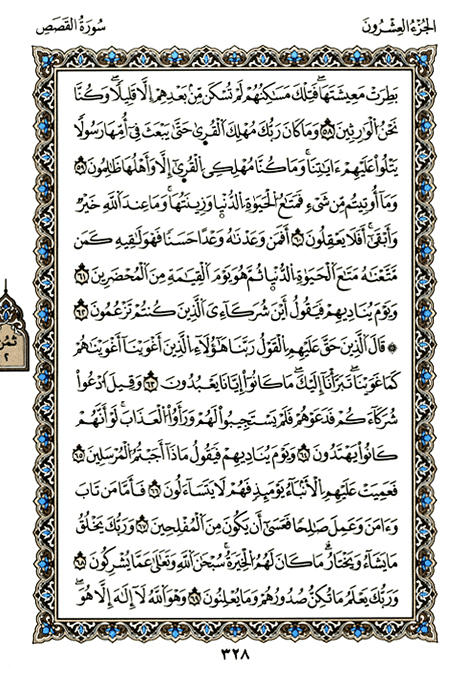 الجُزْءُ العِشْرُونَ
سُورَةُ القَصَصِ
بَطِرَتْ مَعِيشَتَهَا فَتِلْكَ مَسَاكِنُهُمْ لَمْ تُسْكَن مِّنۢ بَعْدِهِمْ إِلَّا قَلِيلًا وَكُنَّا
نَحْنُ الْوَارِثِينَ ٥٨ وَمَا كَانَ رَبُّكَ مُهْلِكَ الْقُرَىٰ حَتَّىٰ يَبْعَثَ فِي أُمِّهَا رَسُولًا
يَتْلُوا۟ عَلَيْهِمْ ءَايَاتِنَا وَمَا كُنَّا مُهْلِكِي الْقُرَىٰ إِلَّا وَأَهْلُهَا ظَالِمُونَ ٥٩
وَمَا أُوتِيتُم مِّن شَيْءٍ فَمَتَاعُ الْحَيَوٰةِ الدُّنْيَا وَزِينَتُهَا وَمَا عِندَ اللَّهِ خَيْرٌ
وَأَبْقَىٰ أَفَلَا تَعْقِلُونَ ٦٠ أَفَمَن وَعَدْنَاهُ وَعْدًا حَسَنًا فَهُوَ لَاقِيهِ كَمَن
مَّتَّعْنَاهُ مَتَاعَ الْحَيَوٰةِ الدُّنْيَا ثُمَّ هُوَ يَوْمَ الْقِيَامَةِ مِنَ الْمُحْضَرِينَ ٦١
وَيَوْمَ يُنَادِيهِمْ فَيَقُولُ أَيْنَ شُرَكَاءِيَ الَّذِينَ كُنتُمْ تَزْعُمُونَ ٦٢
۞ قَالَ الَّذِينَ حَقَّ عَلَيْهِمُ الْقَوْلُ رَبَّنَا هَٰؤُلَاءِ الَّذِينَ أَغْوَيْنَا أَغْوَيْنَاهُمْ
كَمَا غَوَيْنَا تَبَرَّأْنَا إِلَيْكَ مَا كَانُوا إِيَّانَا يَعْبُدُونَ ٦٣ وَقِيلَ ادْعُوا
شُرَكَاءَكُمْ فَدَعَوْهُمْ فَلَمْ يَسْتَجِيبُوا لَهُمْ وَرَأَوُا الْعَذَابَ لَوْ أَنَّهُمْ
كَانُوا يَهْتَدُونَ ٦٤ وَيَوْمَ يُنَادِيهِمْ فَيَقُولُ مَاذَا أَجَبْتُمُ الْمُرْسَلِينَ ٦٥
فَعَمِيَتْ عَلَيْهِمُ الْأَنۢبَاءُ يَوْمَئِذٍ فَهُمْ لَا يَتَسَاءَلُونَ ٦٦ فَأَمَّا مَن تَابَ
وَءَامَنَ وَعَمِلَ صَالِحًا فَعَسَىٰ أَن يَكُونَ مِنَ الْمُفْلِحِينَ ٦٧ وَرَبُّكَ يَخْلُقُ
مَا يَشَاءُ وَيَخْتَارُ مَا كَانَ لَهُمُ الْخِيَرَةُ سُبْحَانَ اللَّهِ وَتَعَالَىٰ عَمَّا يُشْرِكُونَ ٦٨
وَرَبُّكَ يَعْلَمُ مَا تُكِنُّ صُدُورُهُمْ وَمَا يُعْلِنُونَ ٦٩ وَهُوَ اللَّهُ لَا إِلَٰهَ إِلَّا هُوَ
ثُمُن
٢
٣٢٨